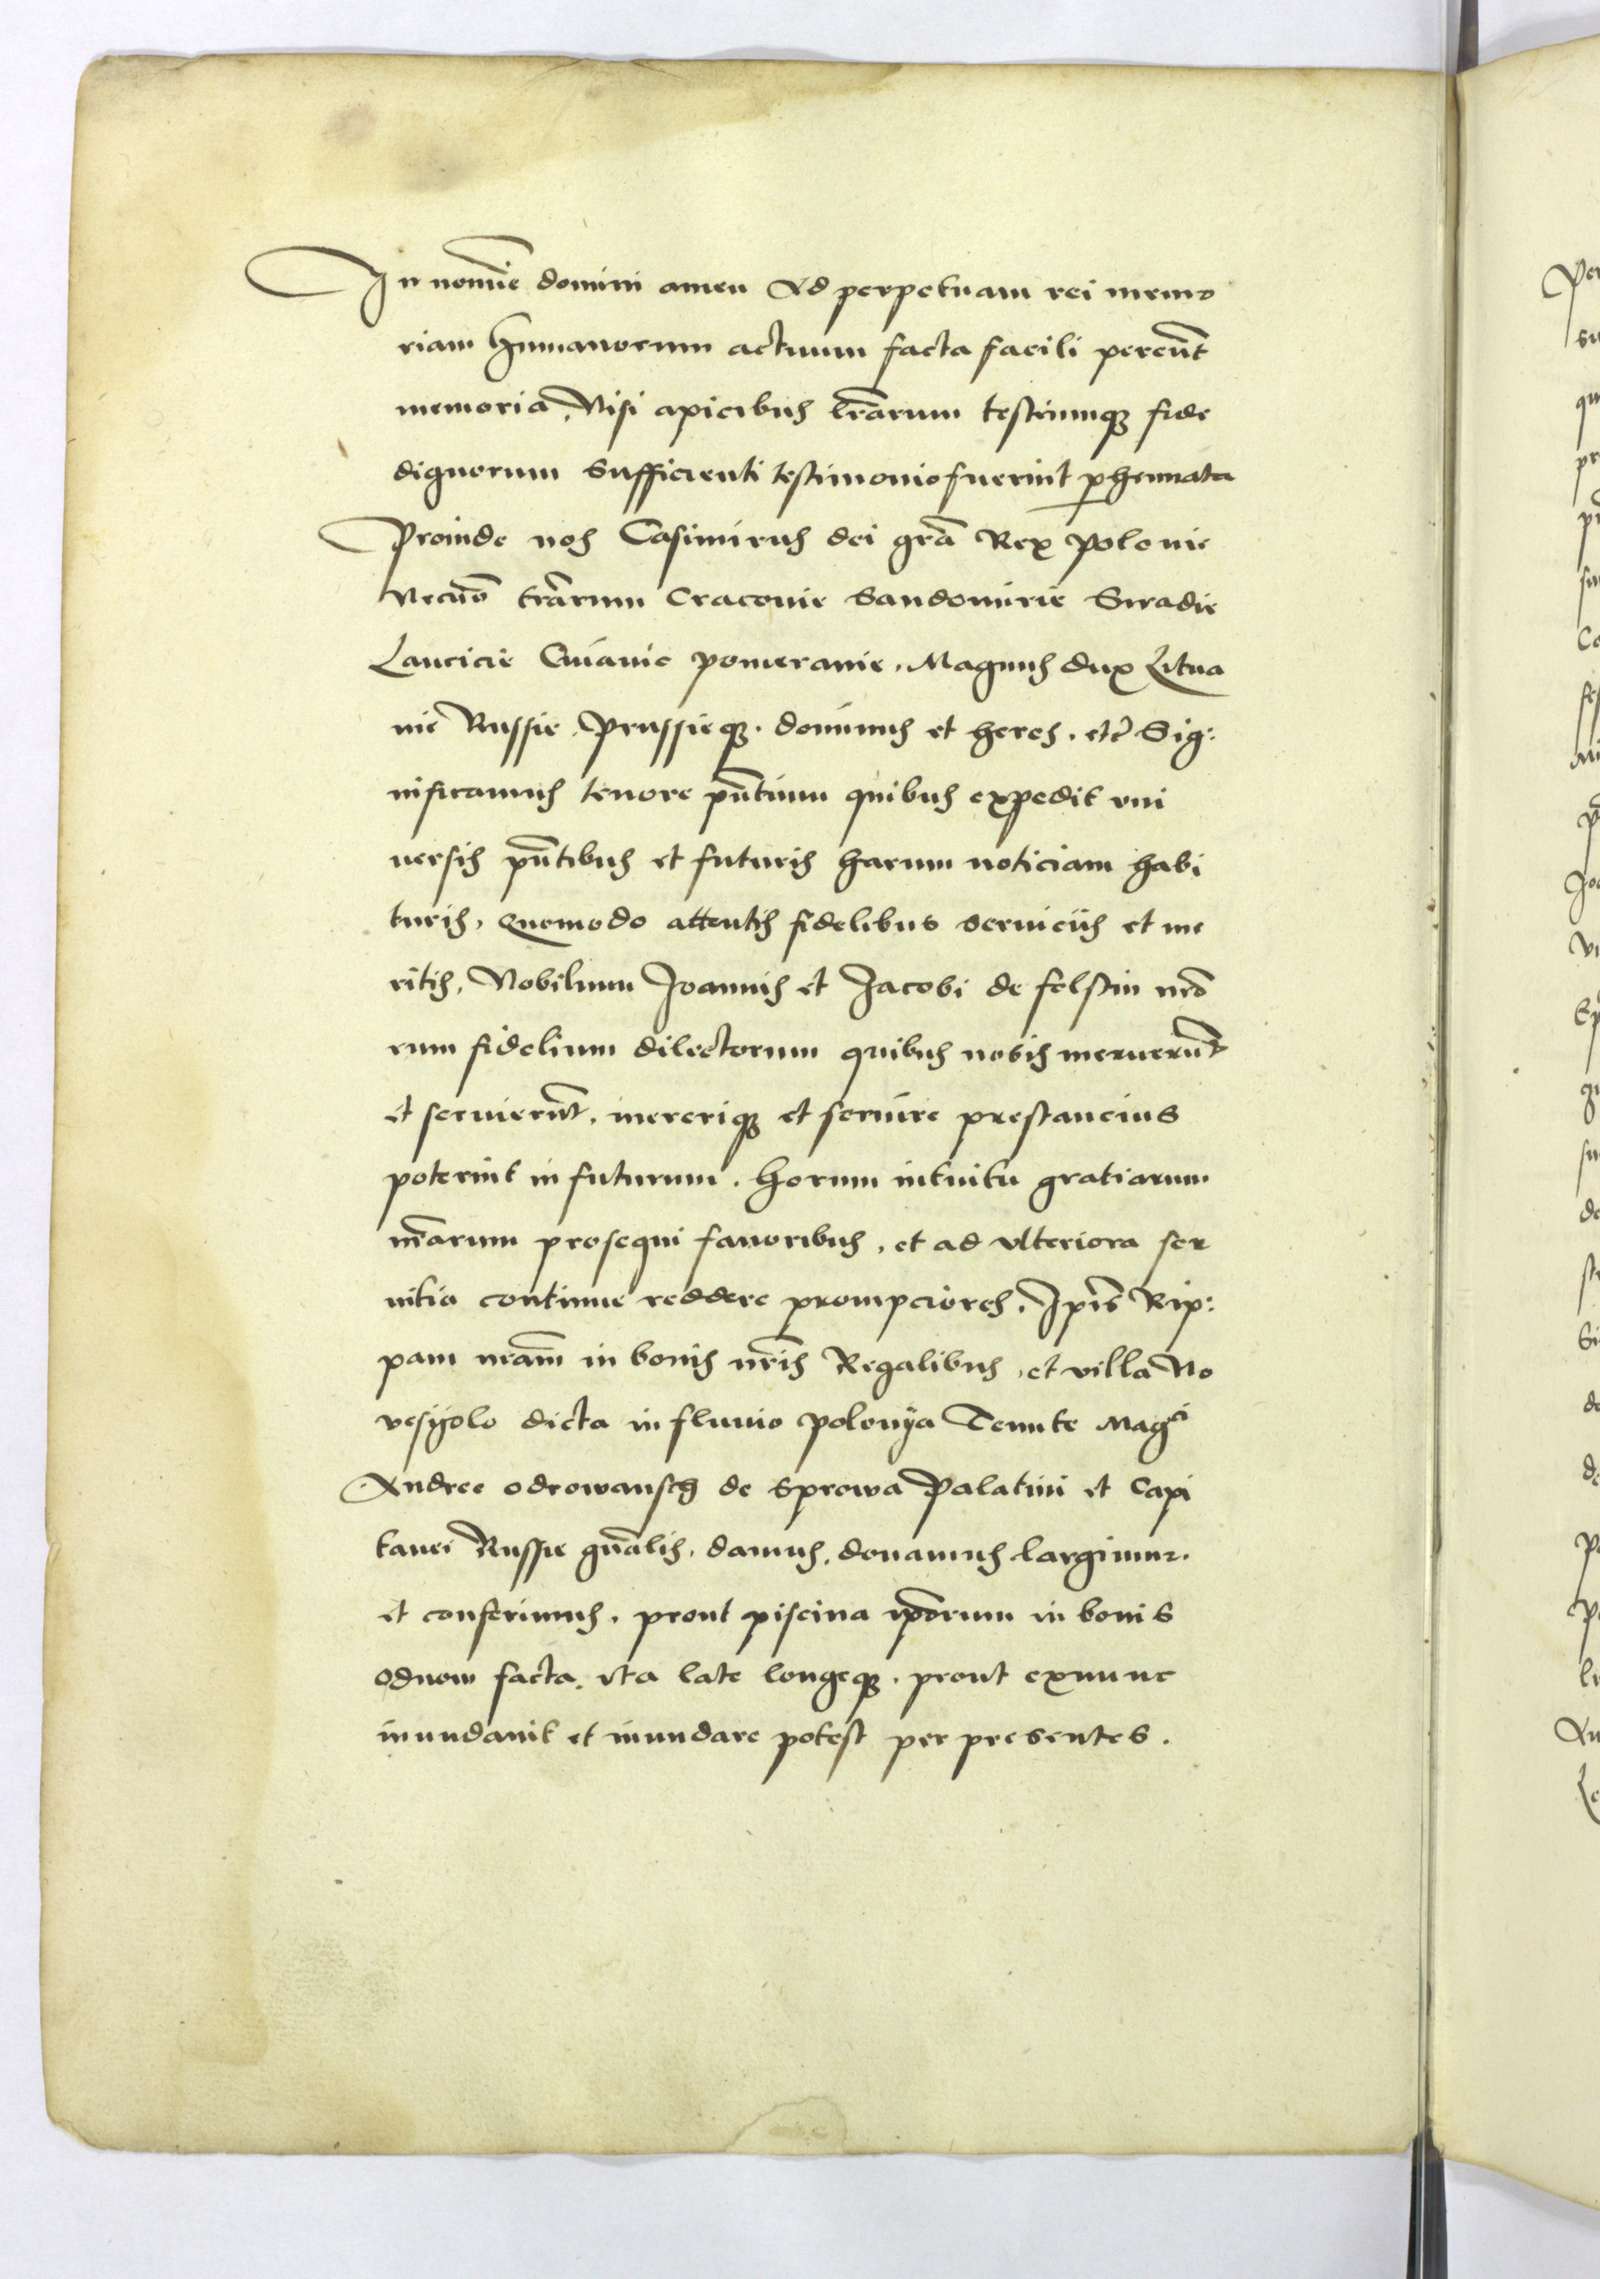 In nomīe domini amen Ad perpetuam rei memo
riam humanorum actuum facta facili pereūt
memoria, Nisi apicibus lr̄arum testiumqȝ fide
dignorum sufficienti testimonio fuerint perhennata
Proinde nos Casimirus dei gr̄a Rex Polonie
Necnō tr̄arum Cracouie Sandomirie Siradie
Lancicie Cuiauie Pomeranie. Magnus dux Litua
nie Russie, Prussieqȝ. dominus et heres. etc̄ Sig:
nificamus tenore pn̄tium quibus expedit vni
uersis pn̄tibus et futuris harum noticiam habi
turis, Quomodo attentis fidelibus seruiciis et me
ritis, Nobilium Joannis et Jacobi de felstin nr̄o
rum fidelium dilectorum quibus nobis meruerūt
et seruierūt. mereriqȝ et seruire prestancius
poterint in futurum. horum intuitu gratiarum
nr̄arum prosequi fauoribus, et ad vlteriora ser
uitia continue reddere prompciores, Ip̄is Rip:
pam nr̄am in bonis nr̄is Regalibus, et villa No
vesyolo dicta in fluuio polonÿa Tenute Magci
Andree odrowansch de Sprowa Palatini et Capi
tanei Russie gn̄alis, damus, donamus largimur.
et conferimus, prout piscina ip̄orum in bonis
odnow facta, ita late longeqȝ. prout exnunc
inundauit et inundare potest per presentes.